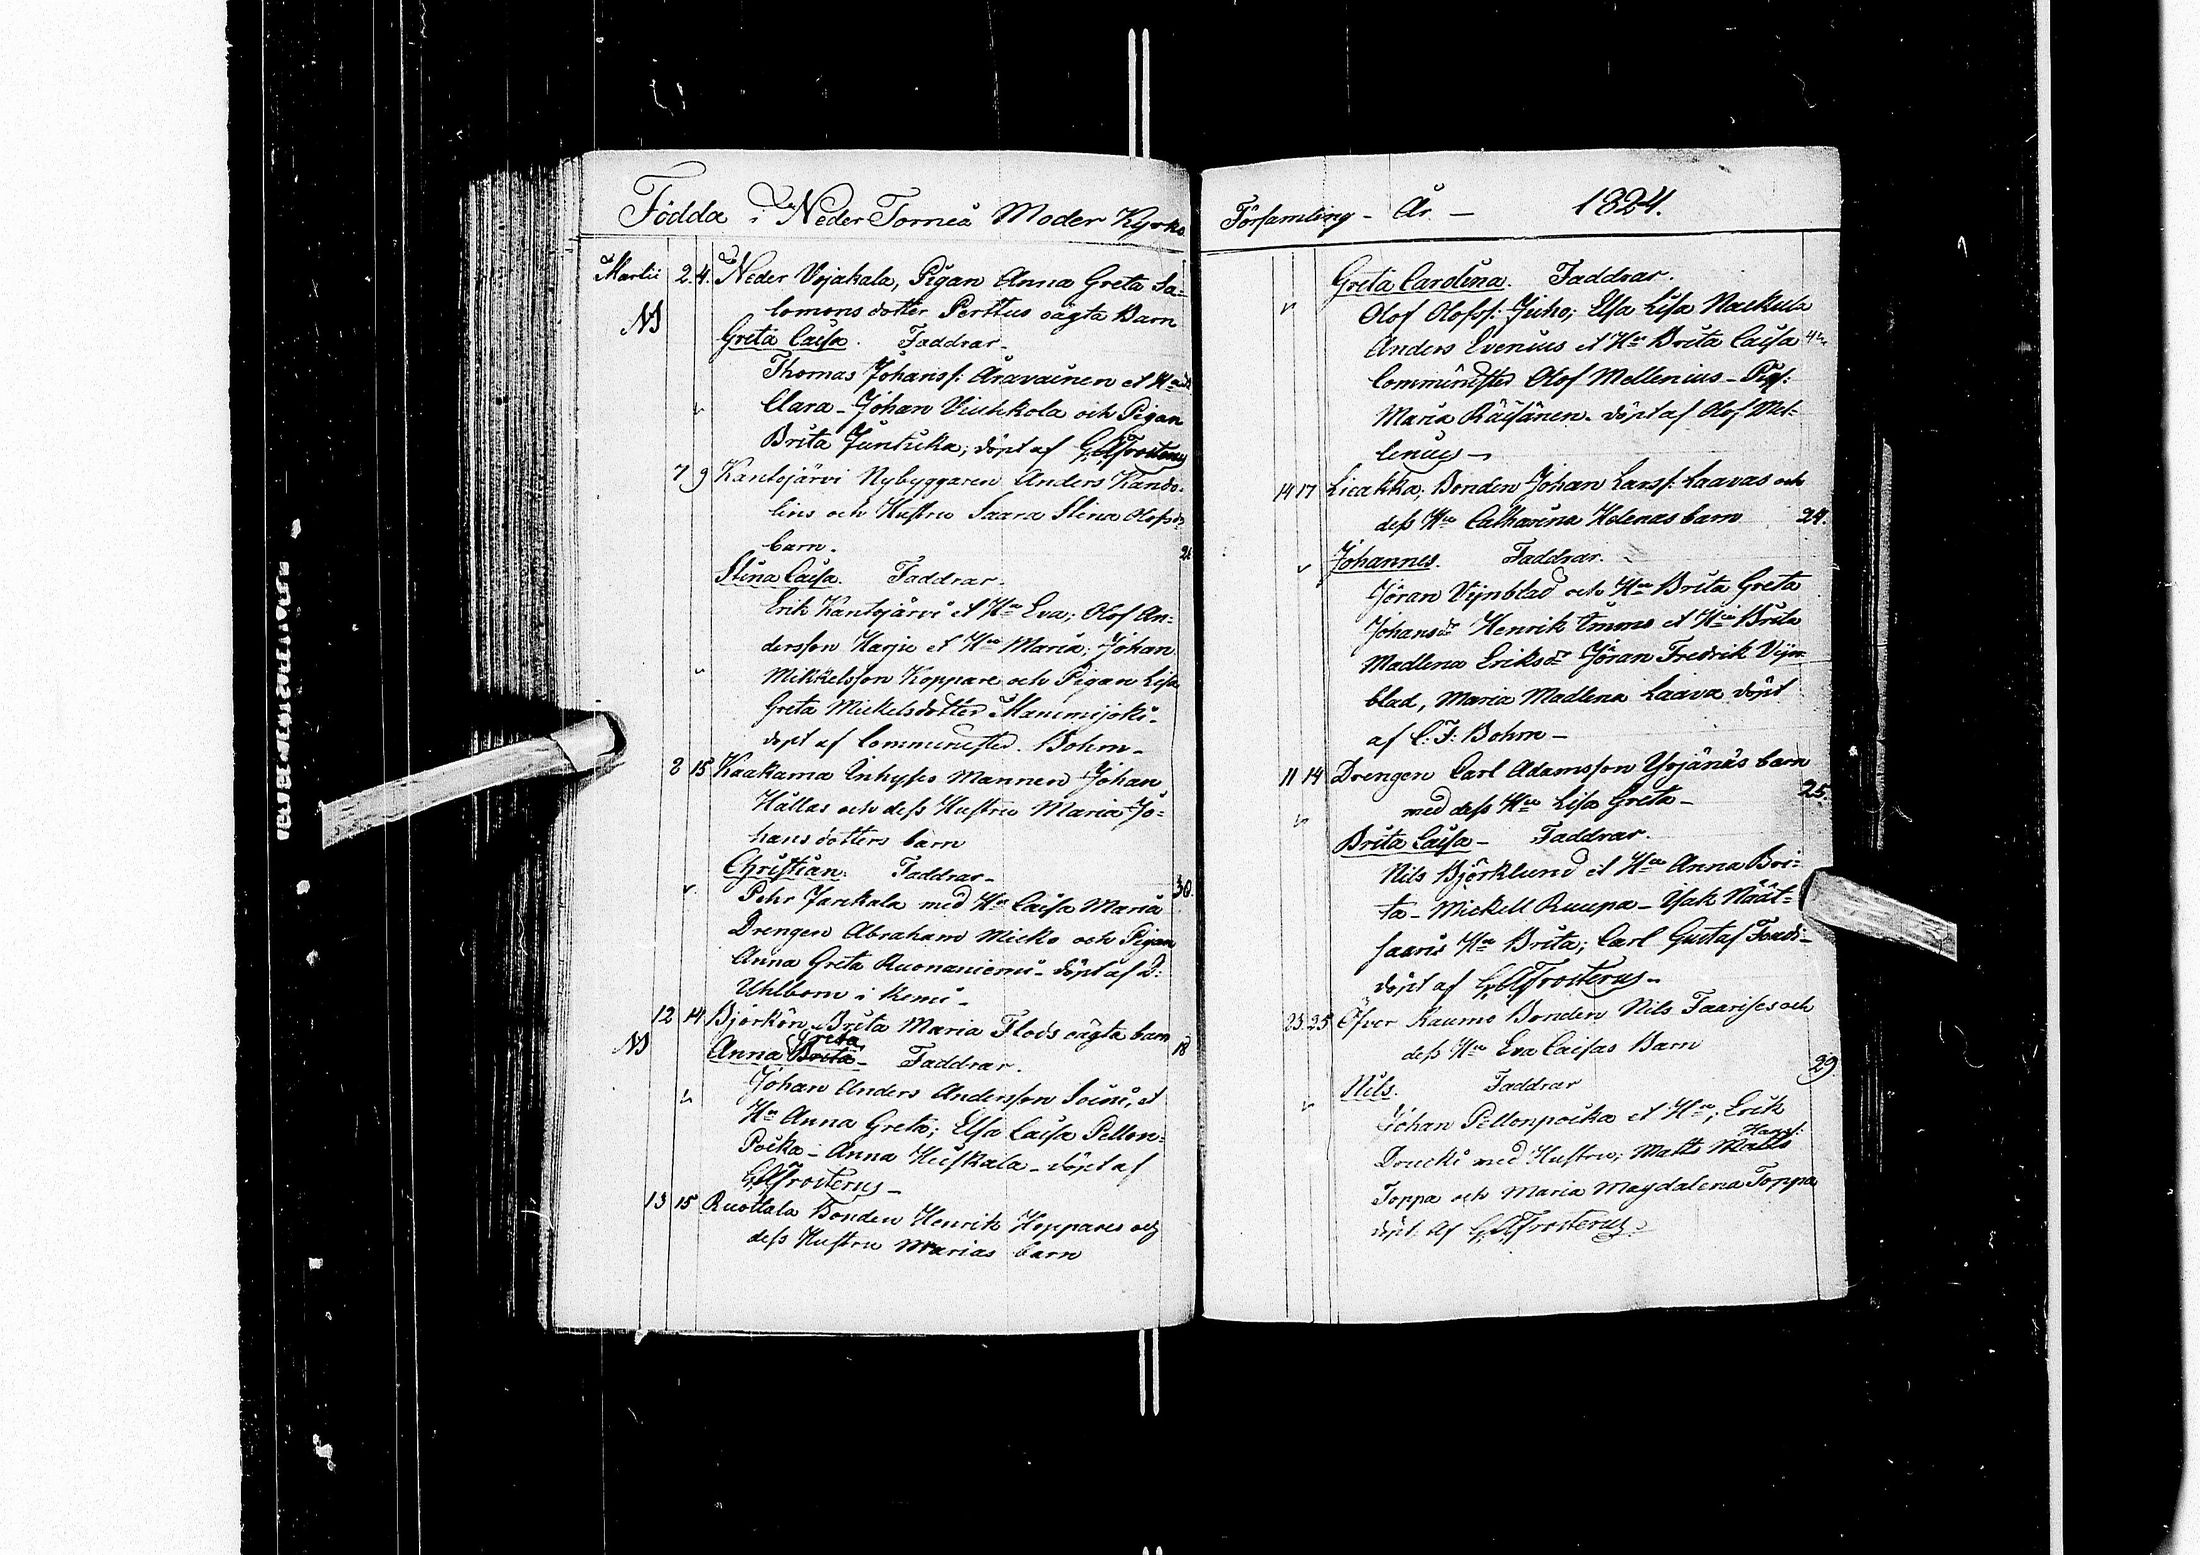 Födda i Neder Torneå Moder Kyrko
Martii 2. 4. Neder Vojakala, Pigan Anna Greta Sa-
lomonsdotter Perttus oägta Barn
Greta Caisa. Faddrar-
Thomas Johanss: Aravainen et Hu
Clara - Johan Viuhkola och Pigan
Brita Juntikka; döpt af G. A. Frosterus
7 9 Kantojärvi Nybyggaren Anders Kando-
lins och Hustru Saara Stina Olofsd:
barn.
Stina Caisa. Faddrar.
Erik Kantojärvi et Hu Eva; Olof An-
dersson Harju et Hu Maria; Johan
Mikkelsson Koppare och Pigan Lisa
Greta Mickelsdotter
döpt af Bohm-
8 15 Kaakama Inhyses Mannen Johan
Hållas och dess Hustru Maria Jo-
hansdotters barn
30.
Christian. Faddrar-
Pehr Jarekala med Hu Caisa Maria
Drengen Abraham Micko och Pigan
Anna Greta Ruonaniemi- döpt af D:
Uhlbom i Kemi-
12 14 Björkön Brita Maria Flods oägta barn
18
Greta
Anna Brita- Faddrar.
Johan Anders Andersson Soini, et
Hu Anna Greta; Elsa Caisa Pellon-
Poika - Anna Heiskala - döpt af
G. A. Frosterus-
13 15 Ruottala Bonden Henrik Hoppares och
dess Hustru Marias barn
Församling - År - 1824.
Greta Carolina. Faddrar.
Olof Olofss: Juho; Elsa Lisa Naekula
Anders Evenius et Hu Brita Caisa
Olof Mellenius - Pig:
Maria Räisänen. döpt af Olof Mel-
lenius-
14 17 Liakka; Bonden Johan Larss: Laavas och
dess Hu Catharina Helenas barn 24.
Johannes. Faddrar.
Jöran Vijnblad och Hu Brita Greta
Johansdr Henrik Emmo et Hu Brita
Madlena Eriksdr Jöran Fredrik Vijn-
blad, Maria Madlena Laava döpt
af C. F. Bohm-
11 14 Drengen Carl Adamsson Yrjänäs barn
med dess Hu Lisa Greta- 25.
Brita Caisa- Faddrar.
Nils Björklund et Hu Anna Bri-
ta - Mickell Ruupa - Isak Näät-
saaris Hu Brita; Carl Gustaf
döpt af G. A. Frosterus-
23 25 Öfver Raumo Bonden Nils Faarises och
dess Hu Eva Caisas Barn 29
Nils. Faddrar
Johan Pellonpoika et Hu; Erik
Hanss:
Drucki med Hustru; Matts Matts
Toppa och Maria Magdalena Toppa
döpt af G. A. Frosterus.